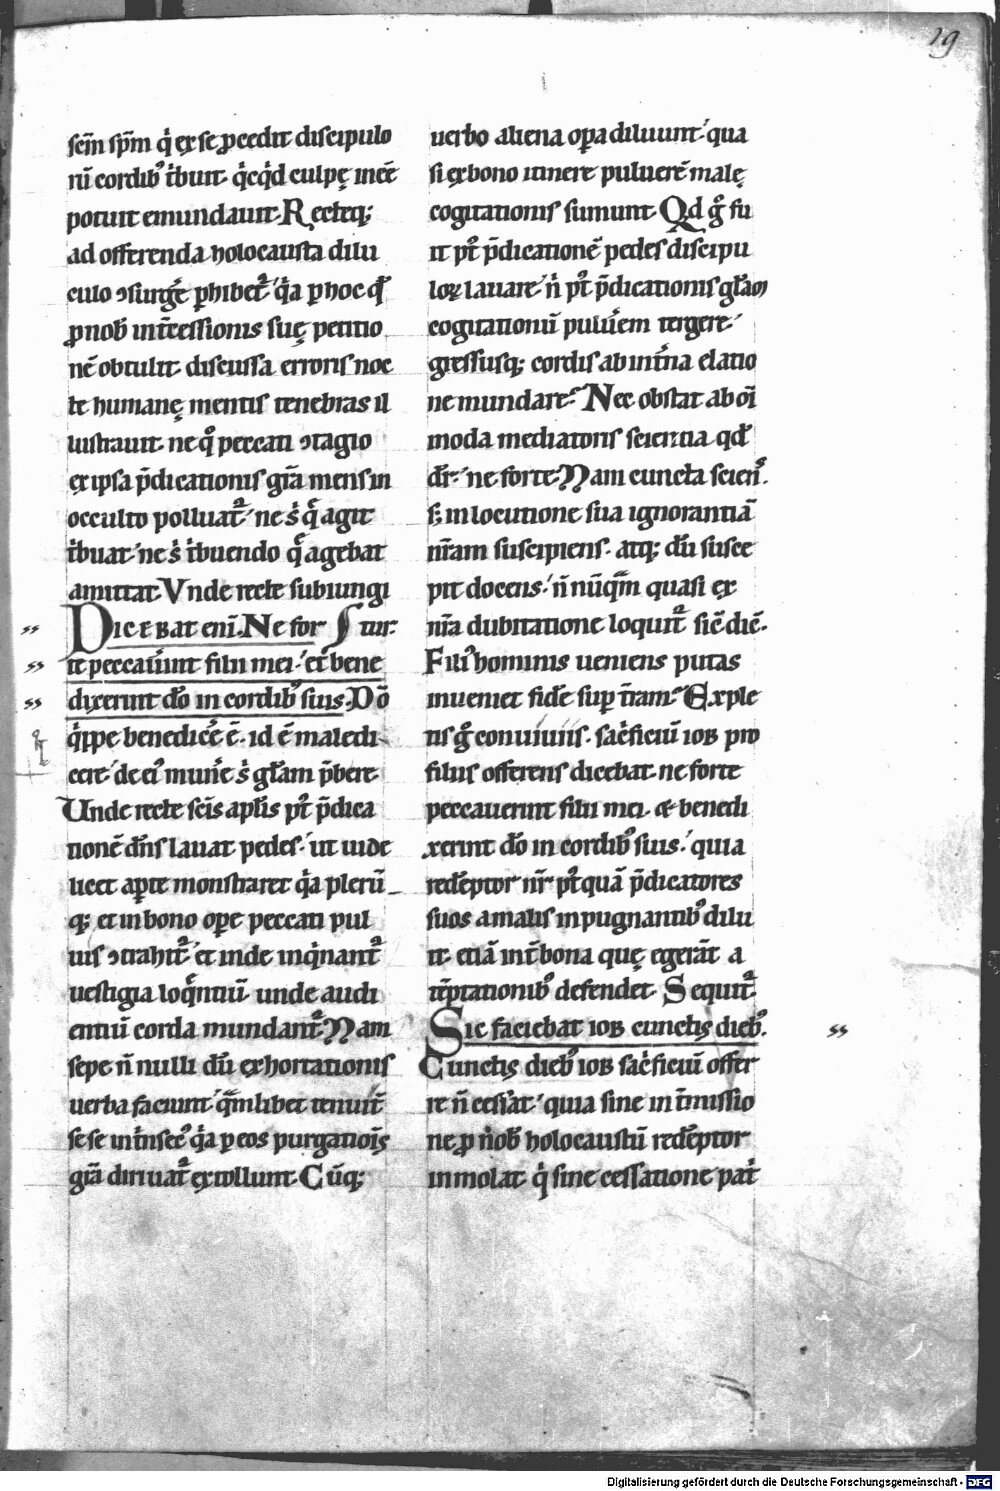 19
sem̄ sp̄m qͥ ex se ꝓcedit discipulo
rū cordibꝰ tͥbuit. qͥcqͥd culpę inēē
potuit emundauit. Recteqꝫ
ad offerenda holocausta dilu
culo ↄsurgͤe ꝑhibetᷣ. qͥa ꝑ hoc qd̄
ꝓ nob̄ int̄cessionis suę petitio
nē obtulit. discussa erroris noc
te humanę mentis tenebras il
lustrauit. ne qͦ peccati ↄtagio
ex ipsa p̄dicationis gr̄a mens in
occulto polluatᷣ. ne sͥ qͤ agit
tͥbuat. ne sͥ tͥbuendo qͤ agebat
amittat. Vnde recte subiungit᷑
Dicebat eni͞. Ne for
te peccauerͥint filii mei. et bene
dixerint do͞ in cordibꝰ suis. Do͞
qͥppe benediceͤ ē. id ē maledi
cere. de eiꝰ munͤe sͥ gl̄am p̄bere.
Unde recte scīs apl̄is ptꝰ p̄dica
tionē dn̄s lauat pedes. ut uide
licet aꝑte monstraret qͥa plerū
qꝫ et in bono oꝑe peccati pul
uis ↄtrahitᷣ. et inde inqͥnantᷣ
uestigia loqͤntiū. unde audi
entiū corda mundantᷣ. Nam
sepe n̄ nulli dū exhortationis
uerba faciunt. qͣmlibet tenuitᷣ
sese intͥnsecꝰ qͥa ꝑ eos purgationis
gr̄a diriuatᷣ extollunt. Cūqꝫ
uerbo aliena oꝑa diluunt. qua
si ex bono itinere puluerē malę
cogitationis sumunt. Qd gͦ fu
it ptꝰ p̄dicationē pedes discipu
loꝝ lauare. nͥ ptꝰ p̄dicationis gl̄am
cogitationū puluͤem tergere.
gressusqꝫ cordis ab intͤna elatio
ne mundare. Nec obstat ab oi͞
moda mediatoris scientia qd̄
dr̄. ne forte. Nam cuncta sciens.
sꝫ in locutione sua ignorantiā
nr̄am suscipiens. atqꝫ dū susce
pit docens. n̄ nūqͣm quasi ex
nr̄a dubitatione loquitᷣ sic̄ dic̄.
Filiꝰ hominis ueniens putas
inueniet fidē suꝑ tr̄am. Exple
tis gͦ conuiuiis. sacͥficiū iob pro
filiis offerens dicebat. ne forte
peccauerint filii mei. & benedi
xerint do͞ in cordibꝰ suis. quia
redēptor nr̄ ptꝰquā p̄dicatores
suos a malis inpugnantibꝰ dilu
it. etiā intͭ bona quę egerāt a
tēptationibꝰ defendet. Sequitᷣ.
Sic faciebat iob cunctis diebꝰ.
Cunctis diebꝰ iob sacͥficiū offer
re n̄ cessat. quia sine intͤmissio
ne ꝓ nob̄ holocaustū redēptor
inmolat. qͥ sine cessatione patͥ
Digitalisierung gefördert durch die Deutsche Forschungsgemeinschaft - DFG